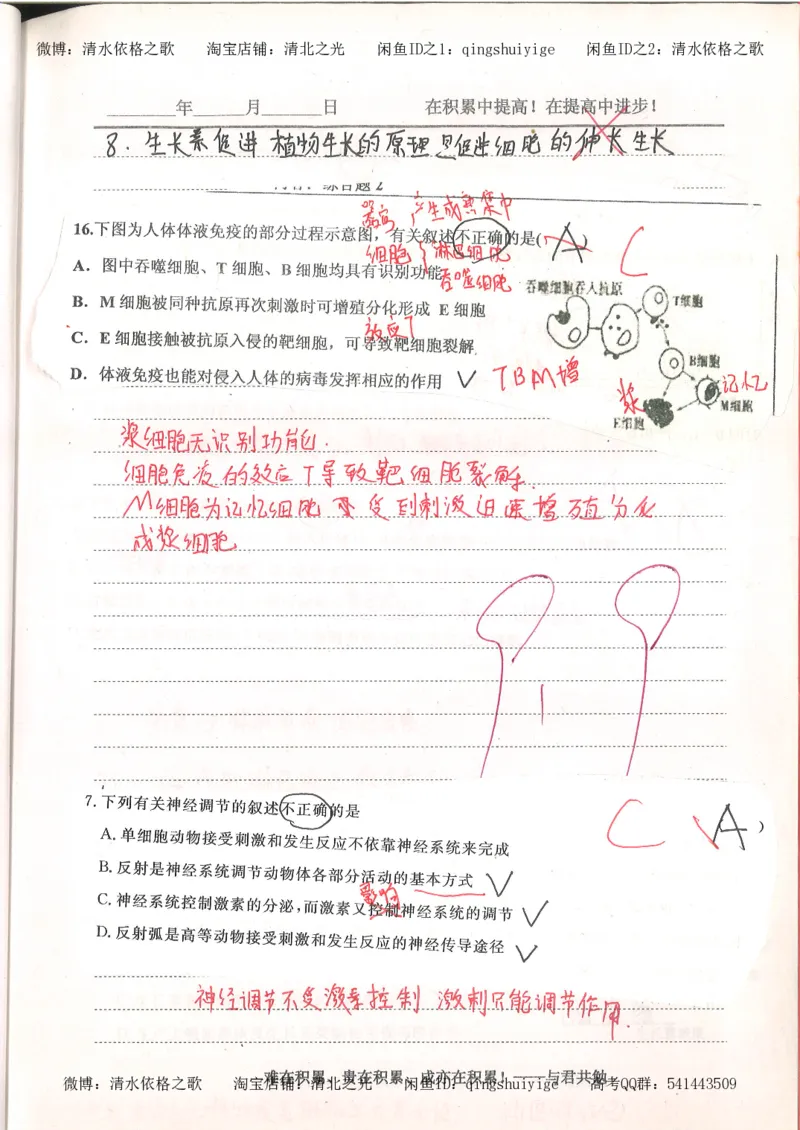 微博：清水依格之歌 淘宝店铺：清北之光 闲鱼ID之1：qingshuiyige 闲鱼ID之2：清水依格之歌
年 月 日 在积累中提高！在提高中进步！
8. 生长素促进植物生长的原理是促进细胞的伸长生长
综合题2
器官 产生成熟集中
16.下图为人体体液免疫的部分过程示意图，有关叙述不正确的是( A ) C
细胞 { 淋巴细胞
A．图中吞噬细胞、T 细胞、B 细胞均具有识别功能
吞噬细胞
吞噬细胞吞入抗原
T细胞
B．M 细胞被同种抗原再次刺激时可增殖分化形成 E 细胞
效应T
C．E 细胞接触被抗原入侵的靶细胞，可导致靶细胞裂解
B细胞
D．体液免疫也能对侵入人体的病毒发挥相应的作用 √ TBM增
浆
记忆
M细胞
E细胞
浆细胞无识别功能．
细胞免疫的效应T导致靶细胞裂解．
M细胞为记忆细胞 受到刺激迅速增殖分化
成浆细胞
7. 下列有关神经调节的叙述不正确的是 C A )
A. 单细胞动物接受刺激和发生反应不依靠神经系统来完成
B. 反射是神经系统调节动物体各部分活动的基本方式 √
影响
C. 神经系统控制激素的分泌，而激素又控制神经系统的调节 √
D. 反射弧是高等动物接受刺激和发生反应的神经传导途径 √
神经调节不受激素控制 激刺只能调节作用．
难在积累，贵在积累，成亦在积累！——与君共勉
微博：清水依格之歌 淘宝店铺：清北之光 闲鱼ID：qingshuiyige 高考QQ群：541443509